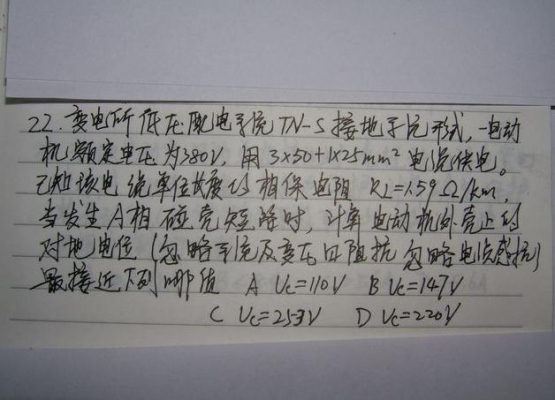 22.变电所低压配电系统TN-S接地系统形式,一电动
机额定电压为380V,用3×50+1×25mm²电缆供电。
已知该电缆单位长度的相保电阻RL=1.59Ω/km,
当发生A相碰壳短路时,计算电动机外壳上的
对地电位(忽略系统及变压的阻抗忽略电缆感抗)
最接近下列哪值 A Uc=110V B Uc=147V
C Uc=253V D Uc=220V